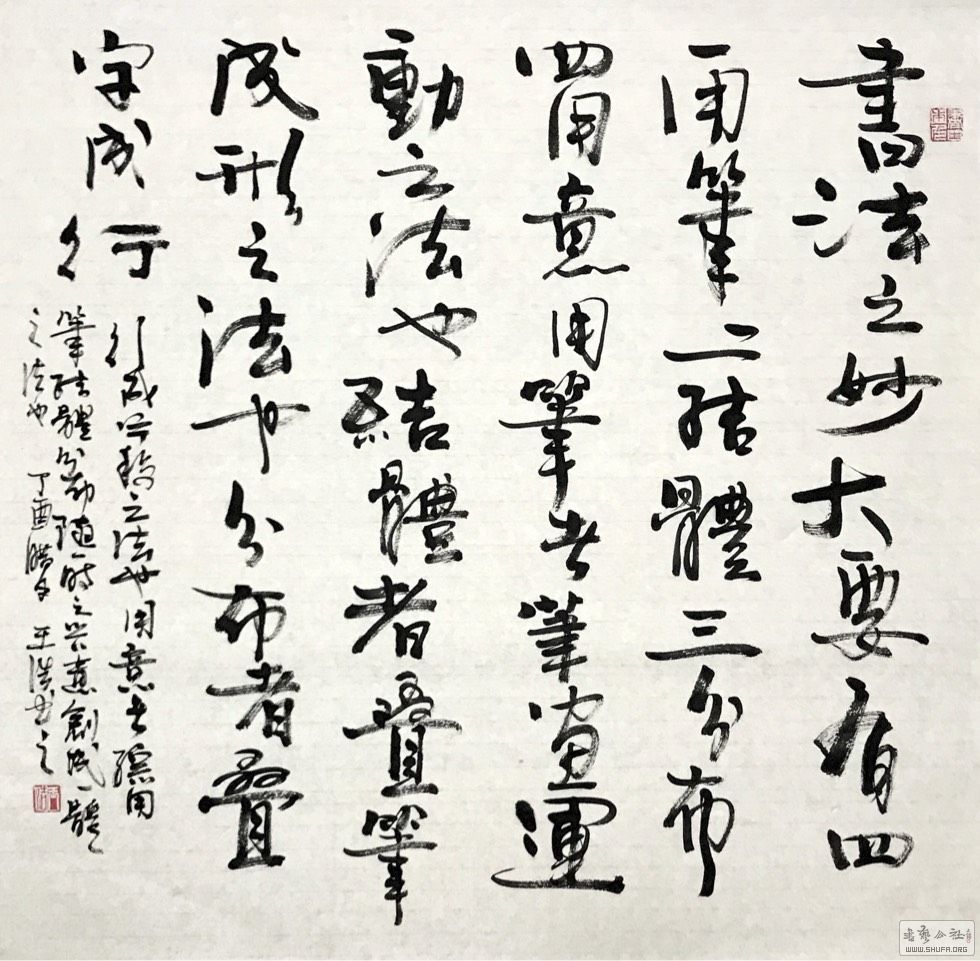 書法之妙大要有四
一用筆二結體三分布
四用意用筆者筆畫運
動之法也結體者疊筆
成形之法也分布者疊
字成行
行成片段之法也用意者綜用
筆結體分布隨一時之興意創成一體
之法也 丁酉臘月 王浩書之
書藝公社
WWW.SHUFA.ORG